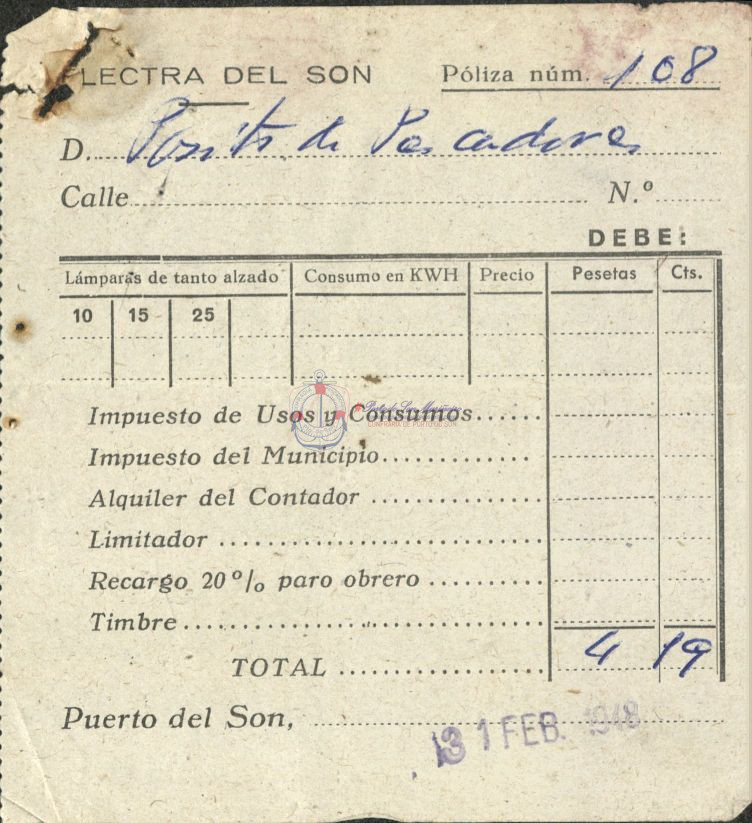 LECTRA DEL SON Póliza núm. 108
D. Posito de Pescadores
Calle N.º
DEBE:
Lámparas de tanto alzado Consumo en KWH Precio Pesetas Cts.
10 15 25
Impuesto de Usos y Consumos
Impuesto del Municipio
Alquiler del Contador
Limitador
Recargo 20 % paro obrero
Timbre
TOTAL 4 19
Puerto del Son,
31 FEB. 1948